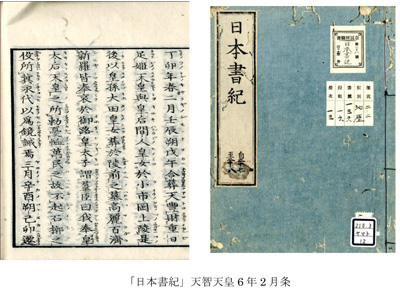 丁卯年春二月壬辰朔戊午合葬天豐財重日
足姬天皇與皇后間人皇女於小市岡上陵是
後以皇孫大田皇女葬於陵前之墓高麗百濟
新羅皆奉哀於御路皇太子謂羣臣曰我奉皇
太后天皇之所勅憂恤萬民之故不起石槨之
役所冀永代以為鏡誡焉三月辛酉朔己卯遷
日本書紀
日本書紀
210.3
ヤマト
12
「日本書紀」天智天皇 6 年 2 月条